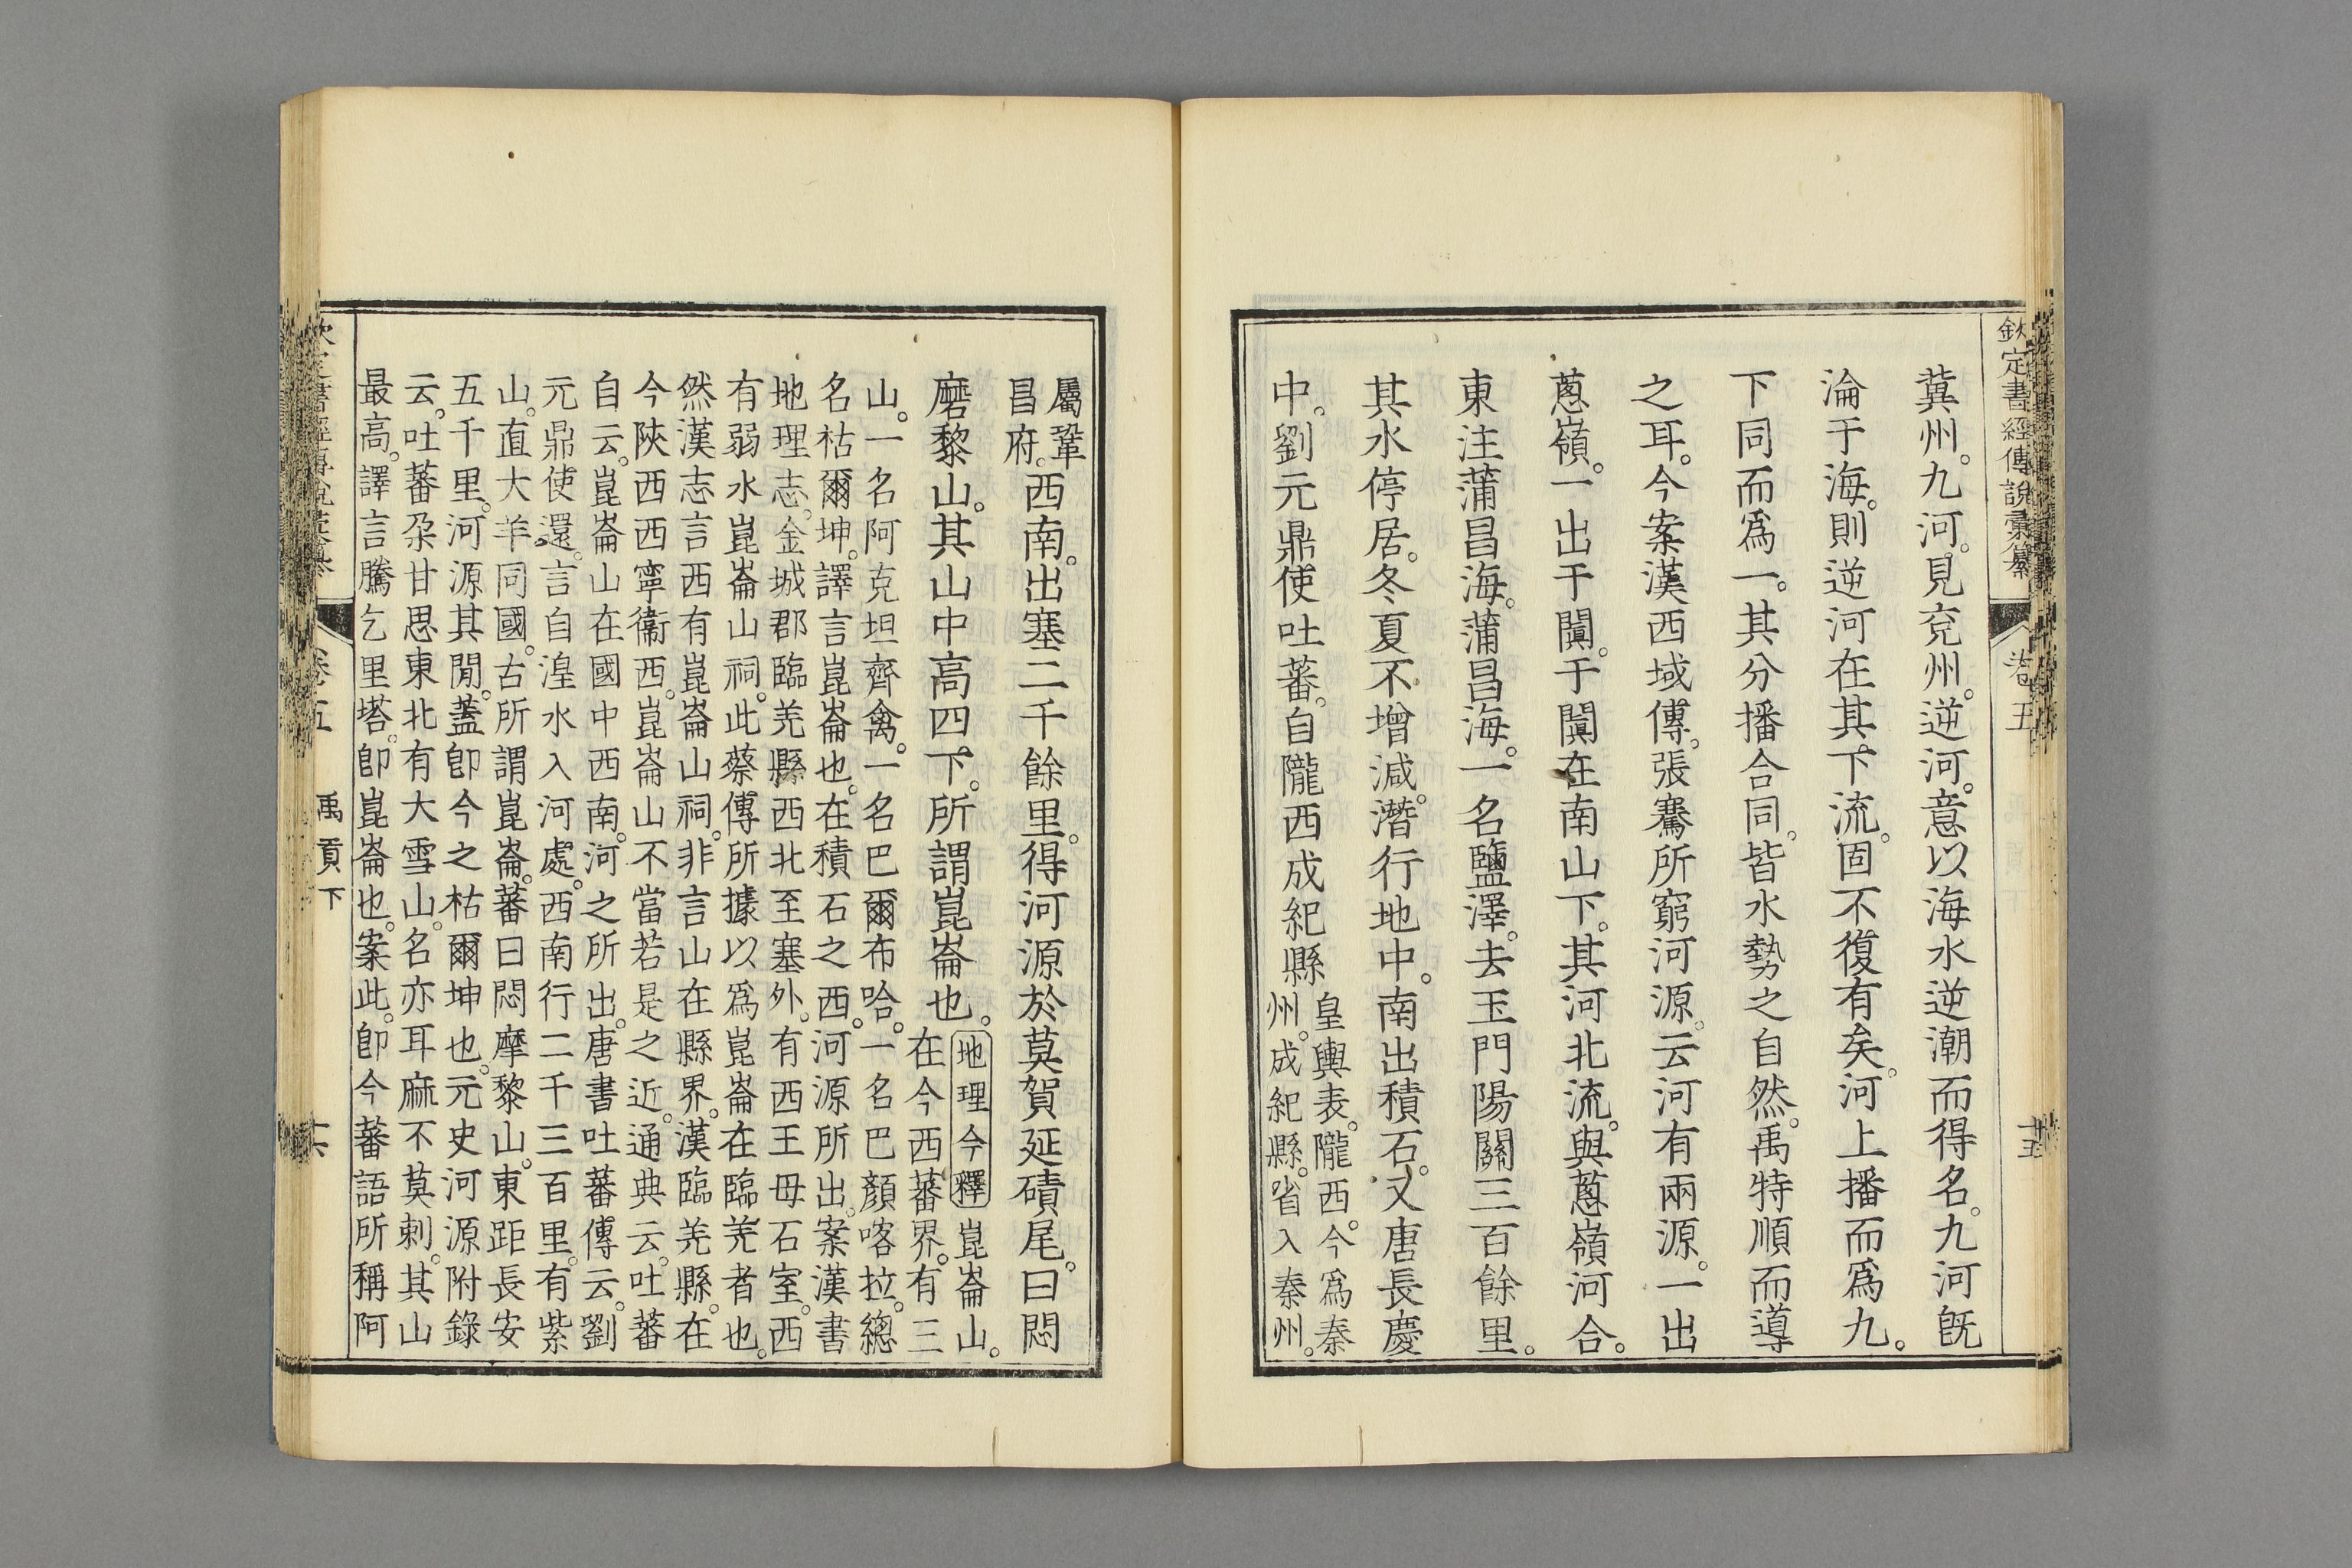 欽定書經傳說彙纂 卷五 十五
冀州。九河。見兗州。逆河。意以海水逆潮而得名。九河旣
淪于海。則逆河在其下流。固不復有矣。河上播而爲九。
下同而爲一。其分播合同。皆水勢之自然。禹特順而導
之耳。今案漢西域傳。張騫所窮河源。云河有兩源。一出
蔥嶺。一出于闐。于闐在南山下。其河北流。與蔥嶺河合。
東注蒲昌海。蒲昌海。一名鹽澤。去玉門陽關三百餘里。
其水停居。冬夏不增減。潛行地中。南出積石。又唐長慶
中。劉元鼎使吐蕃。自隴西成紀縣
皇輿表。隴西。今爲秦
州。成紀縣。省入秦州。
屬鞏
昌府。
西南。出塞二千餘里。得河源於莫賀延磧尾。曰悶
磨黎山。其山中高四下。所謂崑崙也。
地理今釋 崑崙山。
在今西蕃界。有三
山。一名阿克坦齊禽。一名巴爾布哈。一名巴顏喀拉。總
名枯爾坤。譯言崑崙也。在積石之西。河源所出。案漢書
地理志。金城郡臨羌縣西北至塞外。有西王母石室。西
有弱水崑崙山祠。此蔡傳所據以爲崑崙在臨羌者也。
然漢志言西有崑崙山祠。非言山在縣界。漢臨羌縣。在
今陝西西寧衞西。崑崙山不當若是之近。通典云。吐蕃
自云。崑崙山在國中西南。河之所出。唐書吐蕃傳云。劉
元鼎使還。言自湟水入河處。西南行二千三百里。有紫
山。直大羊同國。古所謂崑崙。蕃曰悶摩黎山。東距長安
五千里。河源其閒。蓋卽今之枯爾坤也。元史河源附錄
云。吐蕃朶甘思東北有大雪山。名亦耳麻不莫剌。其山
最高。譯言騰乞里塔。卽崑崙也。案此。卽今蕃語所稱阿
欽定書經傳說彙纂 卷五 禹貢下 十六